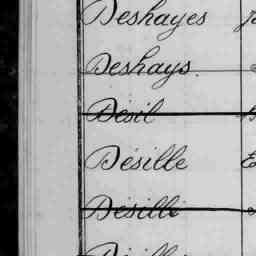 Deshayes
Deshays.
Désil
Désille
Désille